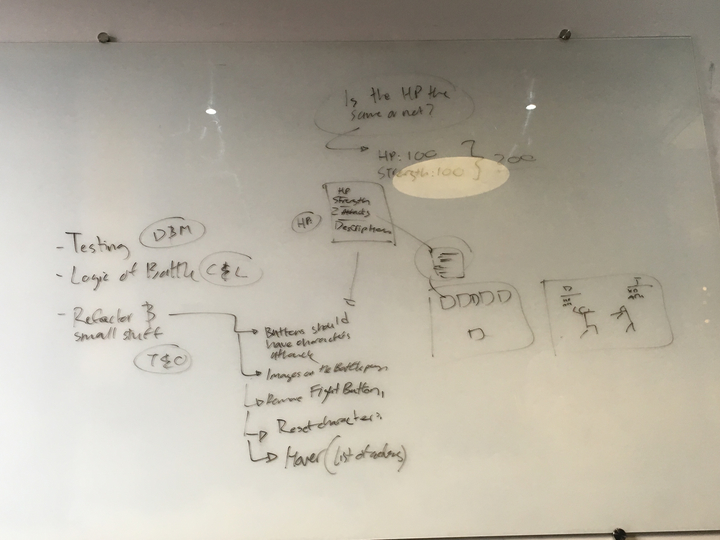 Is the HP the
same or not?
HP: 100
Strength: 100
200
HP
Strength
2 attacks
Description
HA
- Testing
D&M
- Logic of Battle
C & L
- Refactor &
small stuff
T&O
Buttons should
have characters
attack
Images on the Battle page
Remove Fight Button,
Reset characters
Hover (list of